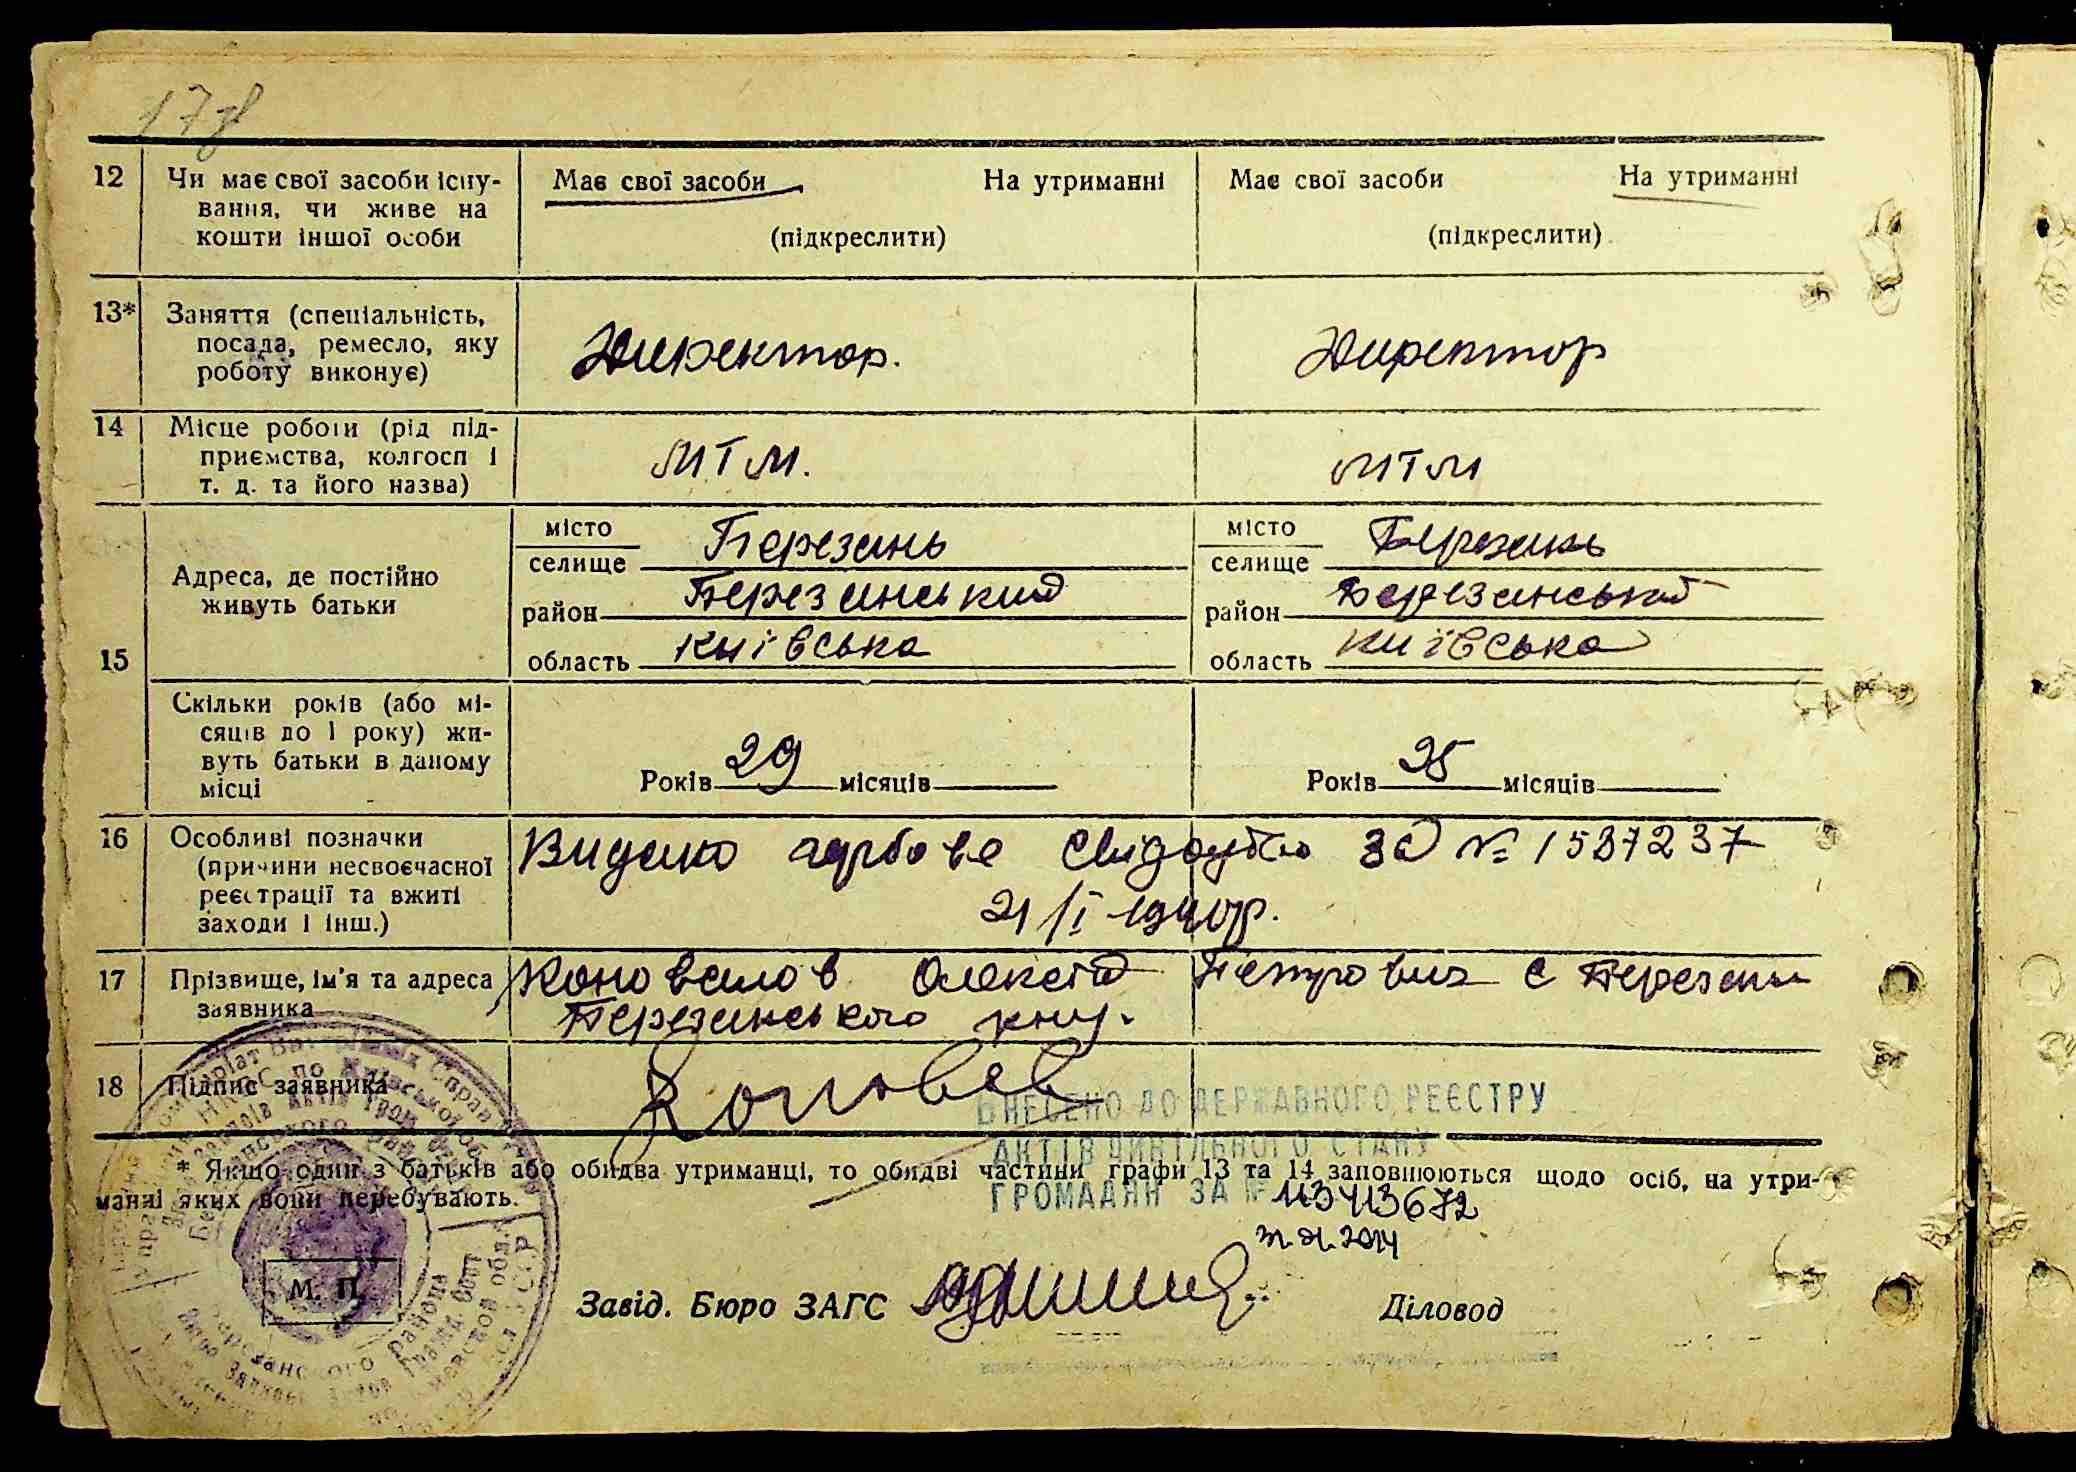 17
12 Чи має свої засоби існу-
вання, чи живе на
кошти іншої особи
Має свої засоби На утриманні
(підкреслити)
Має свої засоби На утриманні
(підкреслити)
13* Заняття (спеціальність,
посада, ремесло, яку
роботу виконує)
Директор.
Директор
14 Місце роботи (рід під-
приємства, колгосп і
т. д. та його назва)
МТМ.
МТМ
15
Адреса, де постійно
живуть батьки
місто
селище Березань
район Березанський
область Київська
місто
селище Березань
район Березанський
область Київська
Скільки років (або мі-
сяців до 1 року) жи-
вуть батьки в даному
місці
Років 29 місяців
Років 25 місяців
16 Особливі позначки
(причини несвоєчасної
реєстрації та вжиті
заходи і інш.)
Видано гербове свідоцтво ЗО № 1537237
21/I 1940р.
17 Прізвище, ім'я та адреса
заявника
Коновалов Олексій Петрович с Березань
Березанського
18 Підпис заявника
ВНЕСЕНО ДО ДЕРЖАВНОГО РЕЄСТРУ
АКТІВ ЦИВІЛЬНОГО СТАНУ
ГРОМАДЯН ЗА №
2014
* Якщо один з батьків або обидва утриманці, то обидві частини графи 13 та 14 заповнюються щодо осіб, на утри-
манні яких вони перебувають.
М. П.
Завід. Бюро ЗАГС
Діловод